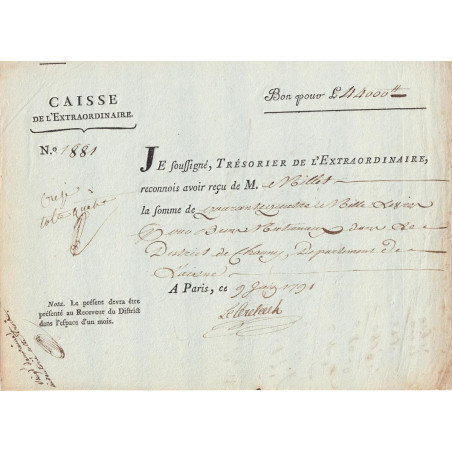 CAISSE
DE L'EXTRAORDINAIRE.
Bon pour £ 44000 tt
N.º 1881
JE soussigné, TRÉSORIER DE L'EXTRAORDINAIRE,
reconnois avoir reçu de M. Nillet
la somme de quarante quatre Mille Livres
pour Biens Nationaux dans le
District de Chauny, Département de
L'aisne
A Paris, ce 9 1791
Nota. Le présent devra être
présenté au Receveur du District
dans l'espace d'un mois.